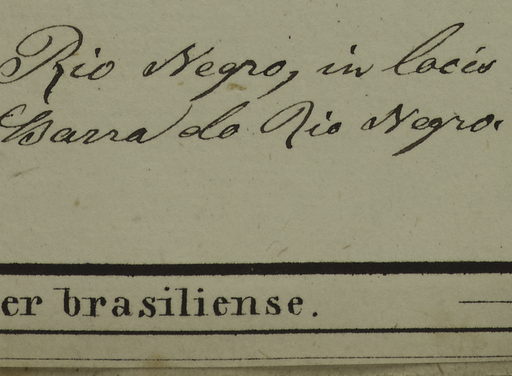 Rio Negro, in locis
Barra do Rio Negro.
er brasiliense.